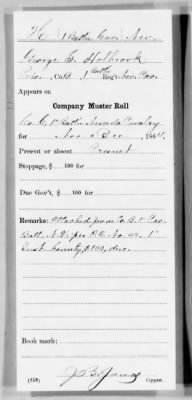 H | 1 Batt'n Cav. | Nev.
George E. Holbrook
Co. C, 1 Batt'n Reg't Nev. Cav.
Appears on
Company Muster Roll
Co C, 1st Batt. Nevada Cavalry
for Nov & Dec, 1864.
Present or absent Present
Stoppage, $ 100 for
Due Gov't, $ 100 for
Remarks: Attached from Co. B. 1st Cav.
Batt. N.V. per No. 1st
Inst. bounty, $100, due.
Book mark:
(358) Copyist.